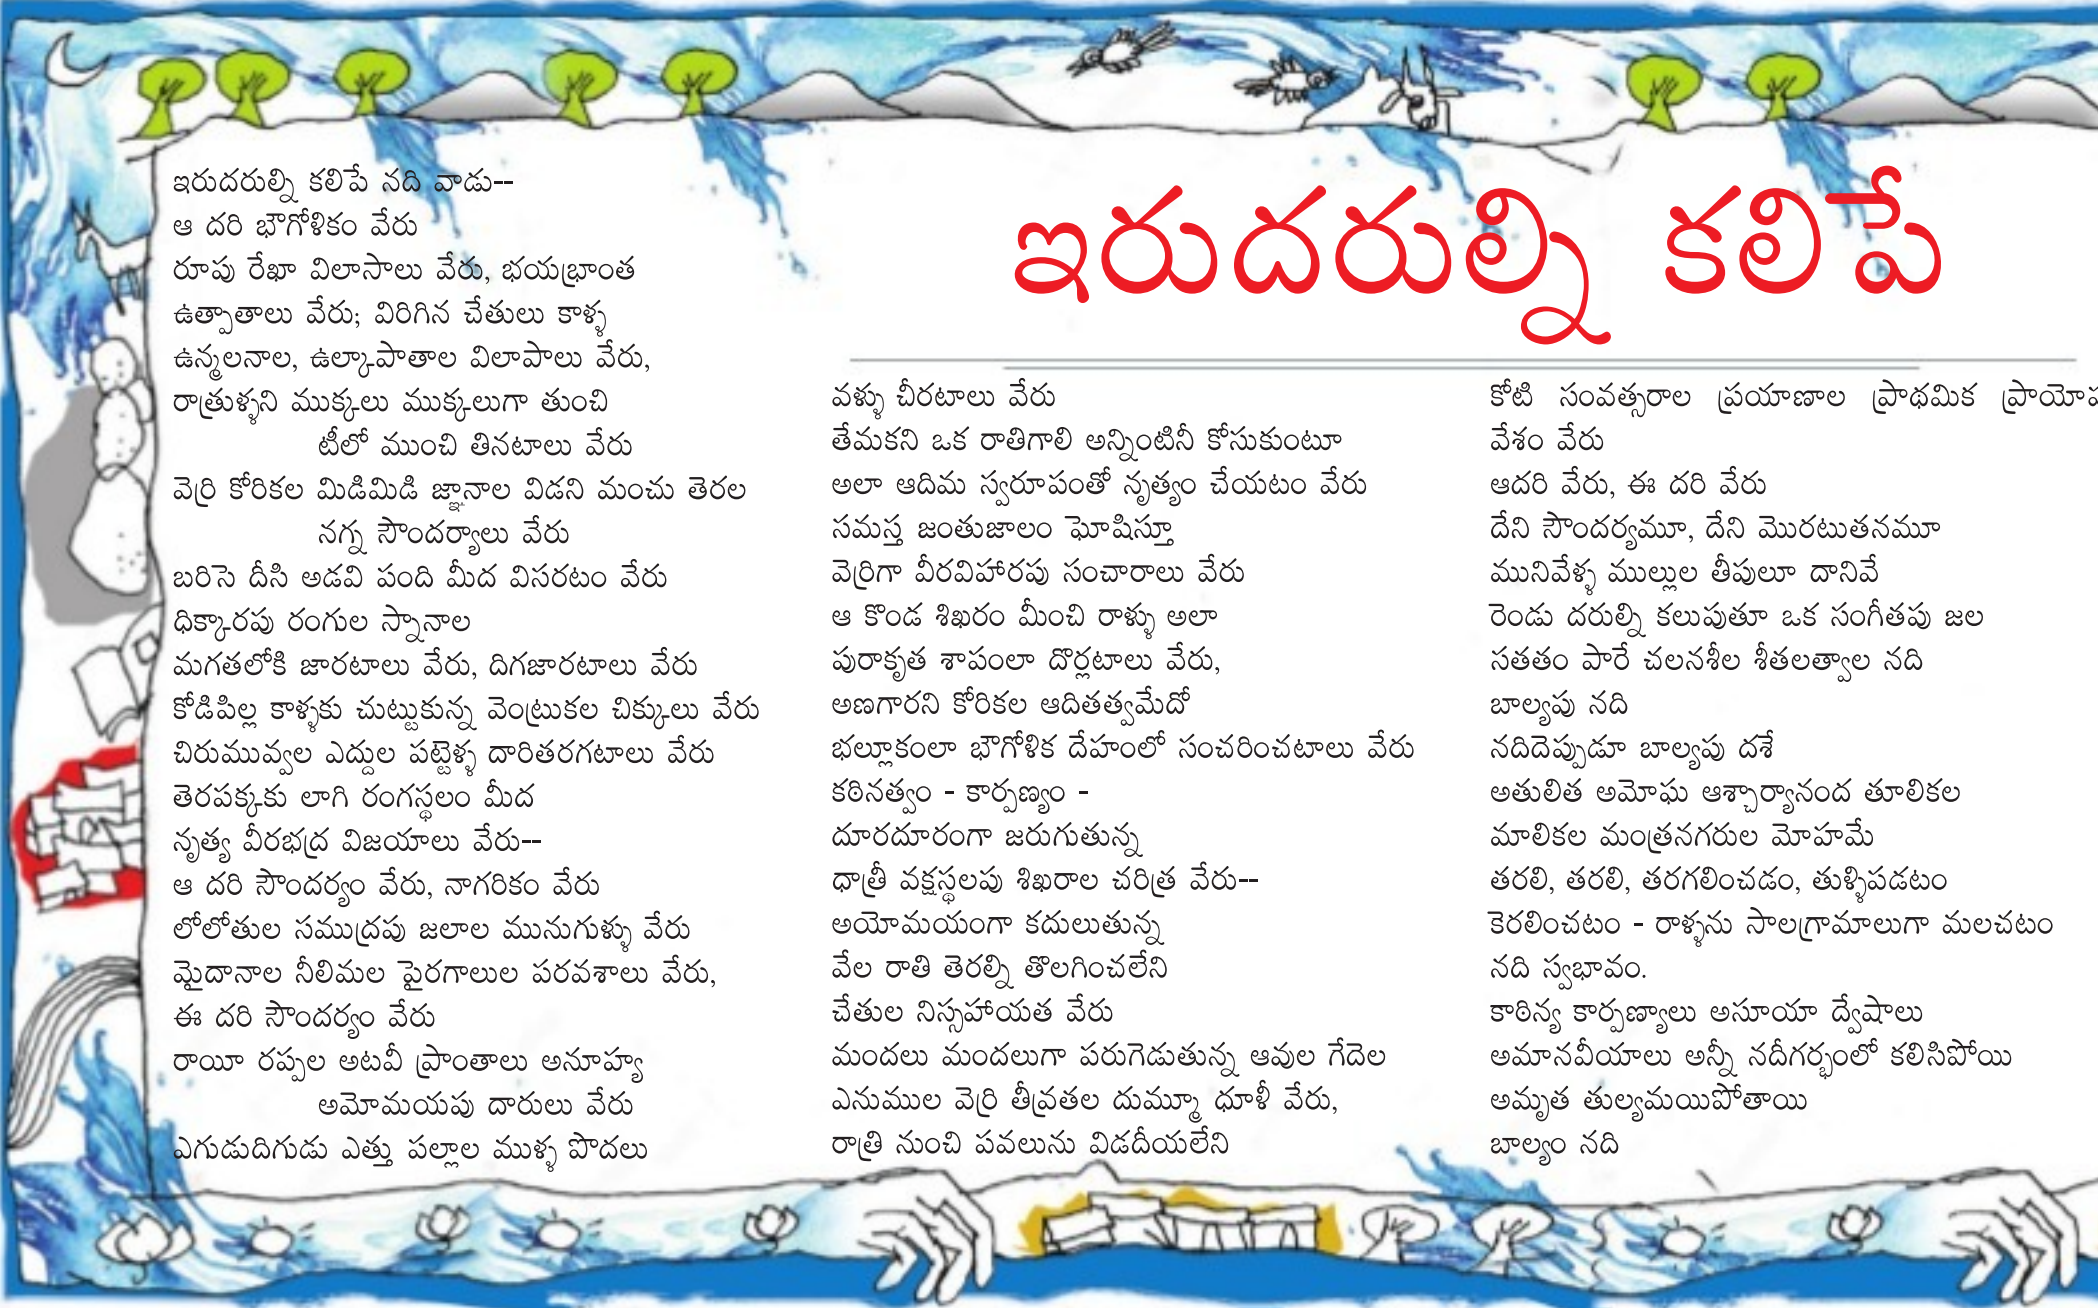 ఇరుదరుల్ని కలిపే
ఇరుదరుల్ని కలిపే నది వాడు--
ఆ దరి భౌగోళికం వేరు
రూపు రేఖా విలాసాలు వేరు, భయభ్రాంత
ఉత్పాతాలు వేరు; విరిగిన చేతులు కాళ్ళ
ఉన్మలనాల, ఉల్కాపాతాల విలాపాలు వేరు,
రాత్రుళ్ళని ముక్కలు ముక్కలుగా తుంచి
టీలో ముంచి తినటాలు వేరు
వెర్రి కోరికల మిడిమిడి జ్ఞానాల విడని మంచు తెరల
నగ్న సౌందర్యాలు వేరు
బరిసె దీసి అడవి పంది మీద విసరటం వేరు
ధిక్కారపు రంగుల స్నానాల
మగతలోకి జారటాలు వేరు, దిగజారటాలు వేరు
కోడిపిల్ల కాళ్ళకు చుట్టుకున్న వెంట్రుకల చిక్కులు వేరు
చిరుమువ్వల ఎద్దుల పట్టెళ్ళ దారితరగటాలు వేరు
తెరపక్కకు లాగి రంగస్థలం మీద
నృత్య వీరభద్ర విజయాలు వేరు--
ఆ దరి సౌందర్యం వేరు, నాగరికం వేరు
లోలోతుల సముద్రపు జలాల మునుగుళ్ళు వేరు
మైదానాల నీలిమల పైరగాలుల పరవశాలు వేరు,
ఈ దరి సౌందర్యం వేరు
రాయీ రప్పల అటవీ ప్రాంతాలు అనూహ్య
అమోమయపు దారులు వేరు
ఎగుడుదిగుడు ఎత్తు పల్లాల ముళ్ళ పొదలు
వళ్ళు చీరటాలు వేరు
తేమకని ఒక రాతిగాలి అన్నింటినీ కోసుకుంటూ
అలా ఆదిమ స్వరూపంతో నృత్యం చేయటం వేరు
సమస్త జంతుజాలం ఘోషిస్తూ
వెర్రిగా వీరవిహారపు సంచారాలు వేరు
ఆ కొండ శిఖరం మీంచి రాళ్ళు అలా
పురాకృత శాపంలా దొర్లటాలు వేరు,
అణగారని కోరికల ఆదితత్వమేదో
భల్లూకంలా భౌగోళిక దేహంలో సంచరించటాలు వేరు
కఠినత్వం - కార్పణ్యం -
దూరదూరంగా జరుగుతున్న
ధాత్రీ వక్షస్థలపు శిఖరాల చరిత్ర వేరు--
అయోమయంగా కదులుతున్న
వేల రాతి తెరల్ని తొలగించలేని
చేతుల నిస్సహాయత వేరు
మందలు మందలుగా పరుగెడుతున్న ఆవుల గేదెల
ఎనుముల వెర్రి తీవ్రతల దుమ్మూ ధూళీ వేరు,
రాత్రి నుంచి పవలును విడదీయలేని
కోటి సంవత్సరాల ప్రయాణాల ప్రాథమిక
వేశం వేరు
ఆదరి వేరు, ఈ దరి వేరు
దేని సౌందర్యమూ, దేని మొరటుతనమూ
మునివేళ్ళ ముల్లుల తీపులూ దానివే
రెండు దరుల్ని కలుపుతూ ఒక సంగీతపు జల
సతతం పారే చలనశీల శీతలత్వాల నది
బాల్యపు నది
నదిదెప్పుడూ బాల్యపు దశే
అతులిత అమోఘ ఆశ్చార్యానంద తూలికల
మాలికల మంత్రనగరుల మోహమే
తరలి, తరలి, తరగలించడం, తుళ్ళిపడటం
కెరలించటం - రాళ్ళను సాలగ్రామాలుగా మలచటం
నది స్వభావం.
కాఠిన్య కార్పణ్యాలు అసూయా ద్వేషాలు
అమానవీయాలు అన్నీ నదీగర్భంలో కలిసిపోయి
అమృత తుల్యమయిపోతాయి
బాల్యం నది